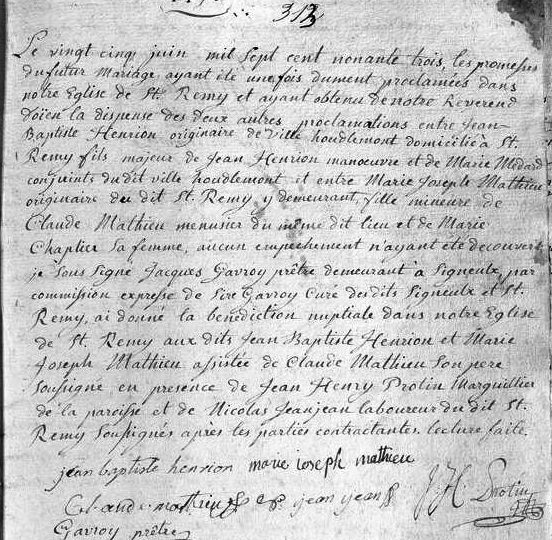 313
Le vingt cinq juin mil Sept cent nonante trois, les promesses
du futur Mariage, ayant été une fois dument proclamées dans
notre Eglise de St. Remy et ayant obtenu de notre Reverend
Doïen la dispense des deux autres proclamations entre Jean
Baptiste Henrion originaire de Ville houdlemont domicilié à St.
Remy fils majeur de Jean Henrion manoeuvre et de Marie Médard
conjoints du dit ville houdlemont et entre Marie Joseph Mathieu
originaire du dit St. Remy y demeurant, fille mineure de
Claude Mathieu menusier du même dit lieu et de Marie
Chaptier Sa femme, aucun empechement n'ayant été decouvert
je Sous Signé Jacques Gavroy prêtre demeurant à Signeulx, par
commission expresse de Sire Gavroy Curé des dits Signeulx et St.
Remy, ai donné la bénédiction nuptiale dans notre Eglise
de St. Remy aux dits Jean Baptiste Henrion et Marie
Joseph Mathieu assistée de Claude Mathieu Son pere
Soussigné en presence de Jean Henry Protin Marguillier
de la paroisse et de Nicolas Jeanjean laboureur du dit St.
Remy Soussignés après les parties contractantes. lecture faite.
jean baptiste henrion marie ioseph mathieu
Claude mathieu jean jean J. H. Protin
Gavroy prêtre